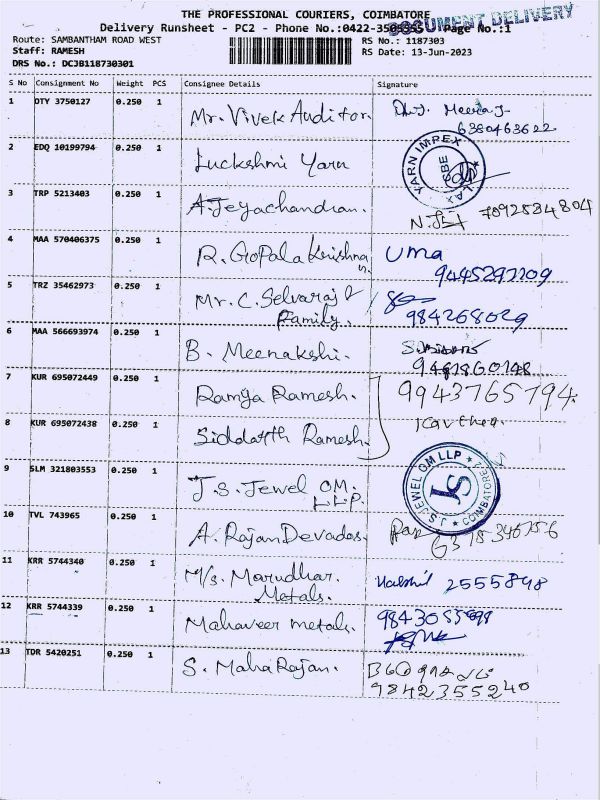 THE PROFESSIONAL COURIERS, COIMBATORE
DOCUMENT DELIVERY
Delivery Runsheet - PC2 - Phone No.:0422- Page No.:1
Route: SAMBANTHAM ROAD WEST RS No.: 1187303
Staff: RAMESH RS Date: 13-Jun-2023
DRS No.: DCJB118730301
S No Consignment No Weight PCS Consignee Details Signature
1 DTY 3750127 0.250 1 Mr. Vivek Auditor. Meera J
6380463622
2 EDQ 10199794 0.250 1 Luckshmi Yarn YARN IMPEX LAX CBE
3 TRP 5213403 0.250 1 A. Jeyachandran. 7092584804
4 MAA 570406375 0.250 1 R. Gopala Krishnas. Uma
9445292209
5 TRZ 35462973 0.250 1 Mr. C. Selvaraj &
Family. 984268029
6 MAA 566693974 0.250 1 B. Meenakshi.
7 KUR 695072449 0.250 1 Ramya Ramesh. 9943765794
8 KUR 695072438 0.250 1 Siddarth Ramesh.
9 SLM 321803553 0.250 1 J.S. Jewel OM.
LLP. JEWEL OM LLP COIMBATORE JS
10 TVL 743965 0.250 1 A. Rajan Devadas.
11 KRR 5744340 0.250 1 M/s. Marudhar.
Metals. 2555898
12 KRR 5744339 0.250 1 Mahaveer metals.
13 TDR 5420251 0.250 1 S. Maha Rajan.
9842355240